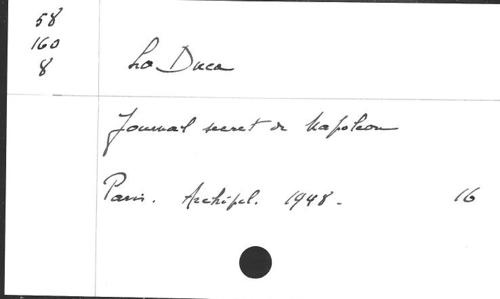 58
160
8
Lo Duca
Journal secret de Napoléon
Paris. Archipel. 1948. 16